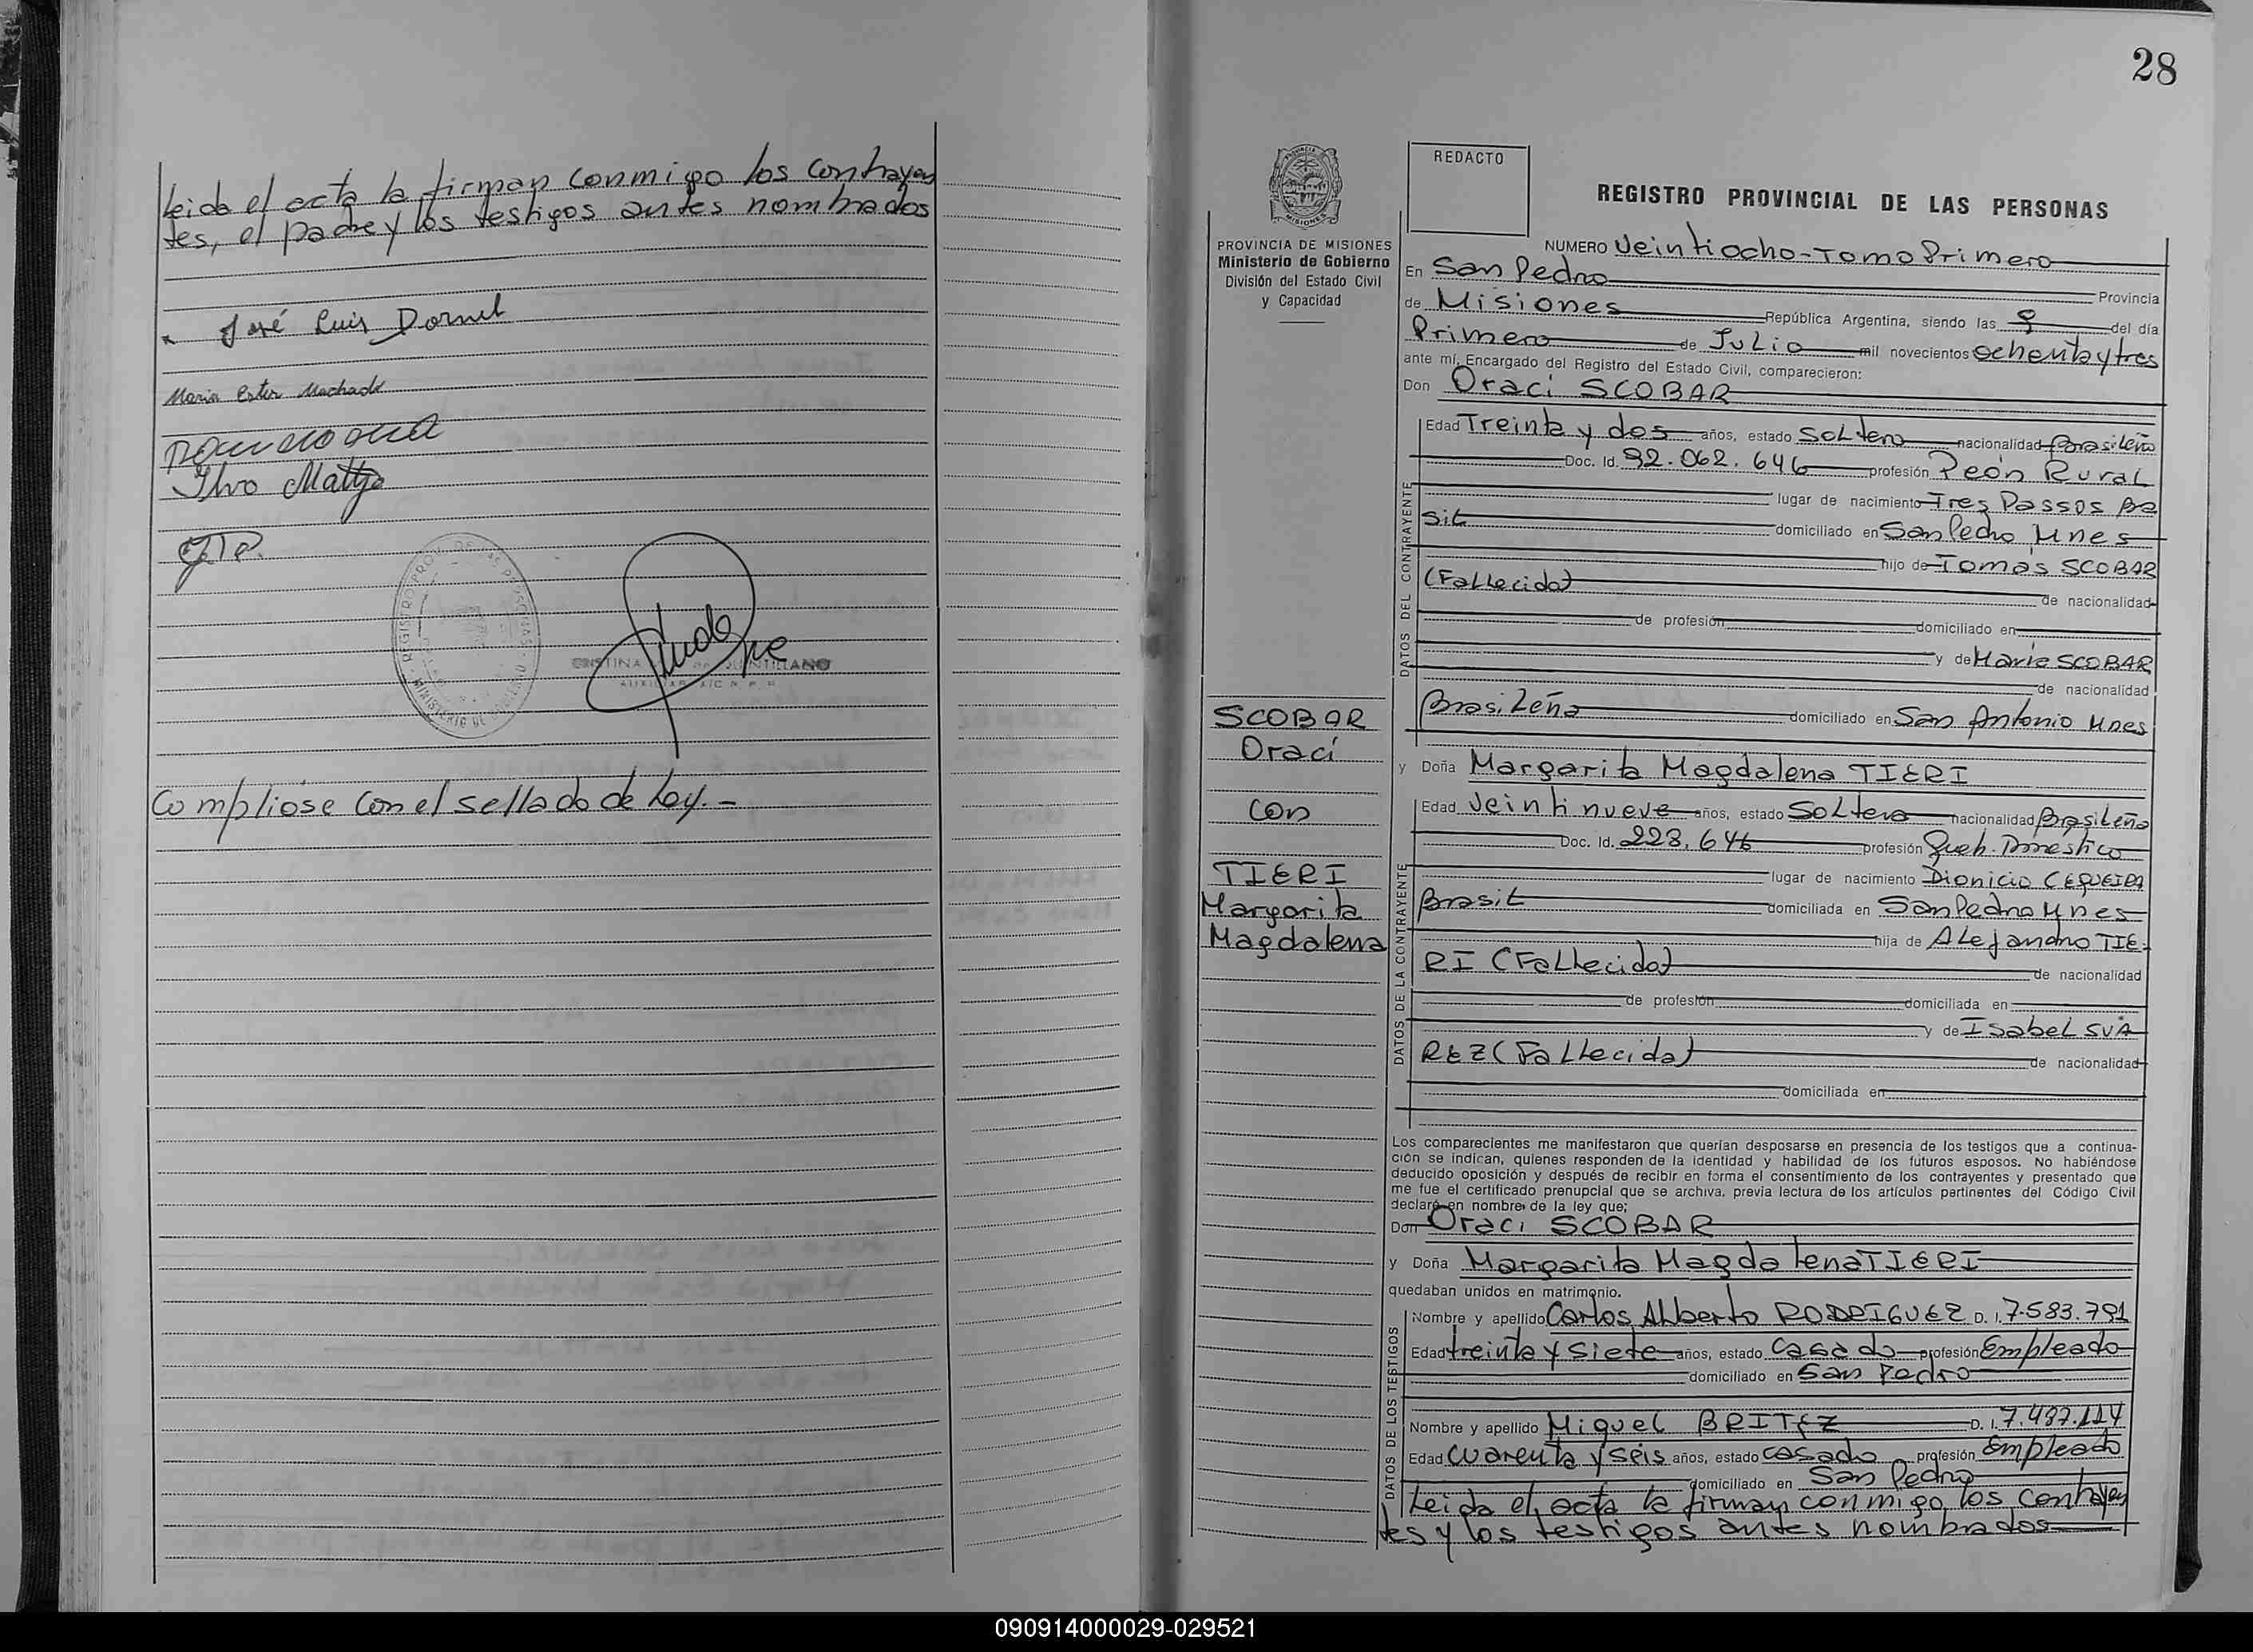 Leida el acta la firman conmigo los contrayen
tes, el padre y los testigos antes nombrados
José Luis Dornel
Maria Ester Machado
Ilvo Mattje
REGISTRO PROV. DE LAS PERSONAS
MINISTERIO DE GOBIERNO
QUINTILLANO
AUXILIAR A/C R. P. P.
Cumpliose con el sellado de Ley.-
28
REDACTO
REGISTRO PROVINCIAL DE LAS PERSONAS
PROVINCIA DE MISIONES
Ministerio de Gobierno
División del Estado Civil
y Capacidad
SCOBAR
Oraci
con
TIERI
Margarita
Magdalena
NUMERO Veintiocho-Tomo Primero
En San Pedro Provincia
de Misiones República Argentina, siendo las 9 del día
Primero de Julio mil novecientos ochenta y tres
ante mí, Encargado del Registro del Estado Civil, comparecieron:
Don Oraci SCOBAR
DATOS DEL CONTRAYENTE
Edad Treinta y dos años, estado Soltero nacionalidad Brasileño
Doc. Id. 92.062.646 profesión Peón Rural
lugar de nacimiento Tres Passos Bra
sil domiciliado en San Pedro Mnes
hijo de Tomas SCOBAR
(Fallecido) de nacionalidad
de profesión domiciliado en
y de Maria SCOBAR
de nacionalidad
Brasileña domiciliado en San Antonio Mnes
y Doña Margarita Magdalena TIERI
DATOS DE LA CONTRAYENTE
Edad Veintinueve años, estado Soltera nacionalidad Brasileña
Doc. Id. 223.646 profesión Queh. Doméstico
lugar de nacimiento Dionicio CEQUEIRA
Brasil domiciliada en San Pedro Mnes
hija de Alejandro TIE-
RI (Fallecido) de nacionalidad
de profesión domiciliada en
y de Isabel SUA
REZ (Fallecida) de nacionalidad
domiciliada en
Los comparecientes me manifestaron que querían desposarse en presencia de los testigos que a continua-
ción se indican, quienes responden de la identidad y habilidad de los futuros esposos. No habiéndose
deducido oposición y después de recibir en forma el consentimiento de los contrayentes y presentado que
me fue el certificado prenupcial que se archiva, previa lectura de los artículos pertinentes del Código Civil
declaré en nombre de la ley que;
Don Oraci SCOBAR
y Doña Margarita Magdalena TIERI
quedaban unidos en matrimonio.
DATOS DE LOS TESTIGOS
Nombre y apellido Carlos Alberto RODRIGUEZ D. I. 7.583.791
Edad treinta y siete años, estado Casado profesión Empleado
domiciliado en San Pedro
Nombre y apellido Miguel BRITEZ D. I. 7.487.114
Edad cuarenta y seis años, estado casado profesión Empleado
domiciliado en San Pedro
Leida el acta la firman conmigo los contrayen
tes y los testigos antes nombrados
090914000029-029521